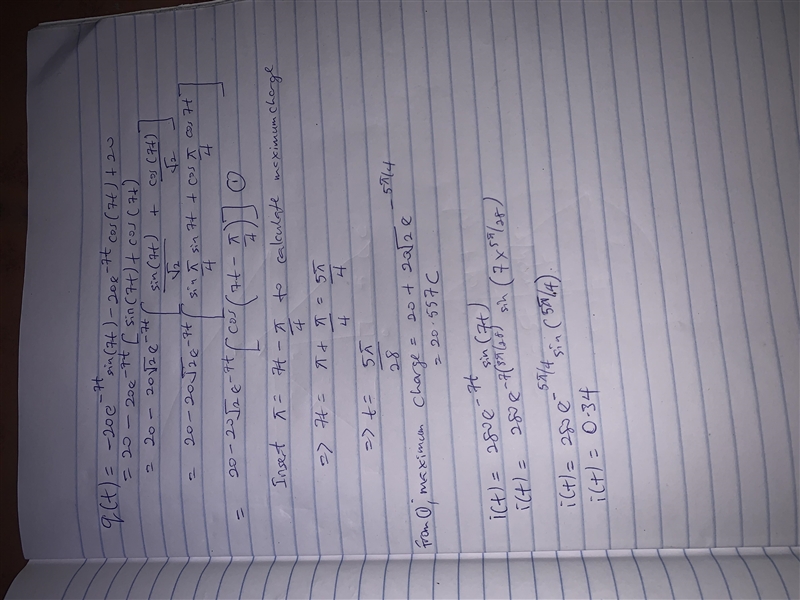 q(t) = -20e^-7t sin(7t) - 20e^-7t cos(7t) + 20
= 20 - 20e^-7t [sin(7t) + cos(7t)
= 20 - 20√2 e^-7t [sin(7t)/√2 + cos(7t)/√2]
= 20 - 20√2 e^-7t [sin π/4 sin 7t + cos π/4 cos 7t]
= 20 - 20√2 e^-7t [cos(7t - π/4)] ①
Insert π = 7t - π/4 to calculate maximum charge
=> 7t = π + π/4 = 5π/4
=> t = 5π/28
From ①, maximum charge = 20 + 20√2 e^-5π/4
= 20.557C
i(t) = 280e^-7t sin(7t)
i(t) = 280e^-7(5π/28) sin(7×5π/28)
i(t) = 280e^-5π/4 sin(5π/4).
i(t) = 0.34